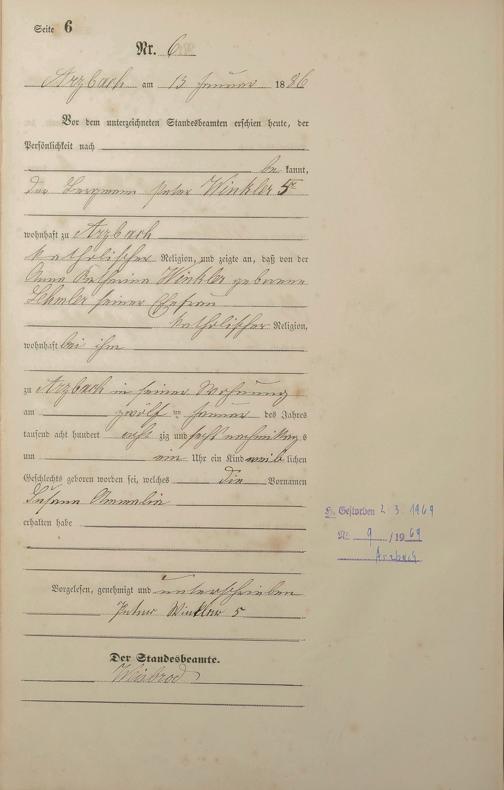 Seite 6
Nr. 6
Arzbach am 13 Januar 1886
Vor dem unterzeichneten Standesbeamten erschien heute, der
Persönlichkeit nach
be kannt,
der Bergmann Peter Winkler 5r
wohnhaft zu Arzbach
katholischer Religion, und zeigte an, daß von der
Anna Katharina Winkler geborene
seiner Ehefrau
katholischer Religion,
wohnhaft bei ihm
zu Arzbach in seiner Wohnung
am zwölf ten Januar des Jahres
tausend acht hundert acht zig und sechs nachmittags
um ein Uhr ein Kind weib lichen
Geschlechts geboren worden sei, welches die Vornamen
Susana Ammalia
erhalten habe
Vorgelesen, genehmigt und unterschrieben
Peter Winkler 5
Der Standesbeamte.
Gestorben 2.3.1969
Nr. 9 /1969
Arzbach